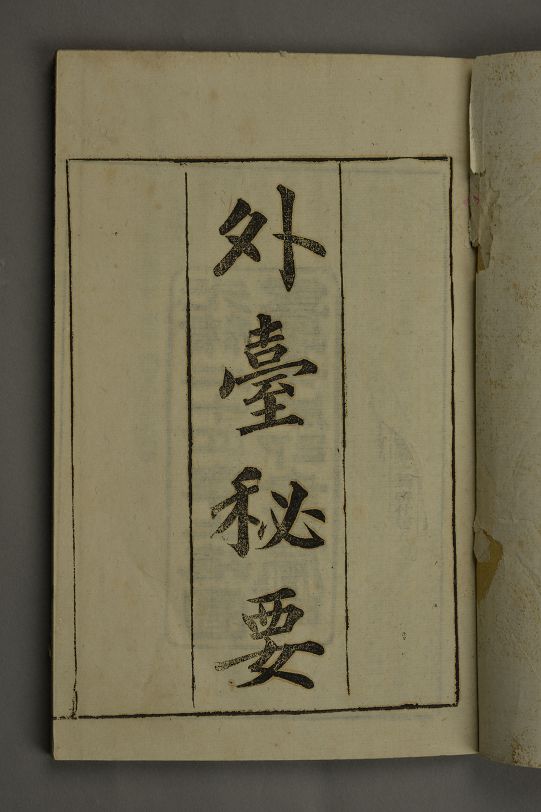 外臺秘要